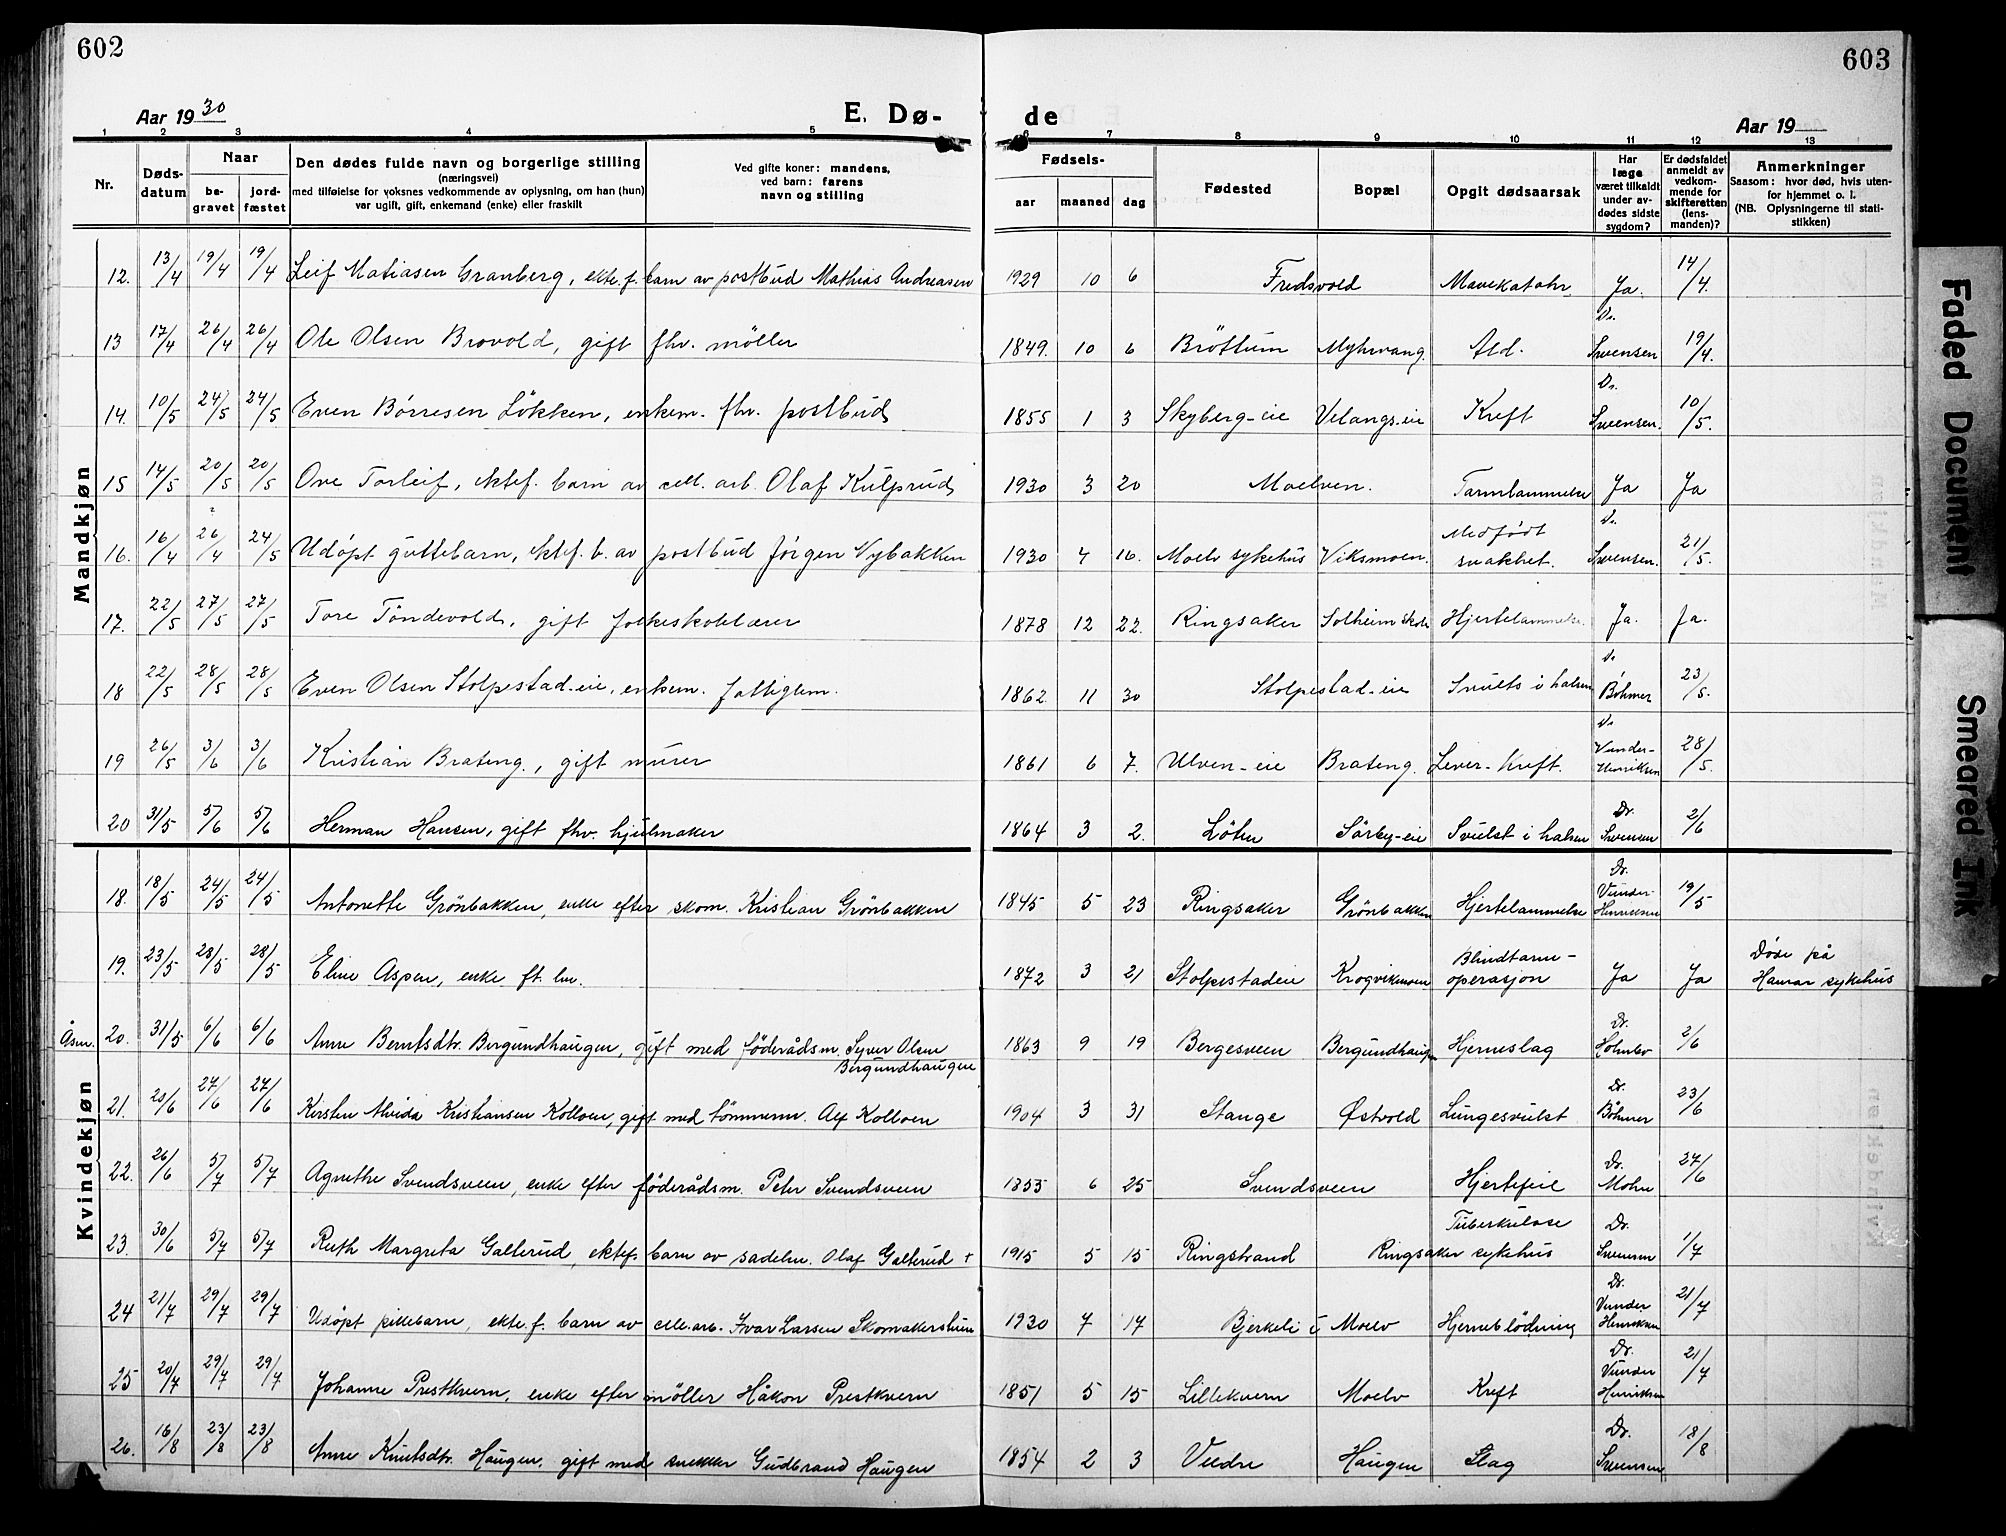 602
603
Aar 1930
E. Dø-
de
Aar 19
1 2 3 4 5 6 7 8 9 10 11 12 13
Nr.
Døds-
datum
Naar
be-
gravet
jord-
fæstet
Den dødes fulde navn og borgerlige stilling
(næringsvei)
med tilføielse for voksnes vedkommende av oplysning, om han (hun)
var ugift, gift, enkemand (enke) eller fraskilt
Ved gifte koner: mandens,
ved barn: farens
navn og stilling
Fødsels-
aar
maaned
dag
Fødested
Bopæl
Opgit dødsaarsak
Har
læge
været tilkaldt
under av-
dødes sidste
sygdom?
Er dødsfaldet
anmeldt av
vedkom-
mende for
skifteretten
(lens-
manden)?
Anmerkninger
Saasom: hvor død, hvis uten-
for hjemmet o. l.
(NB. Oplysningerne til stati-
stikken)
Mandkjøn
12. 13/4 19/4 19/4 Leif Matiasen Granberg, ekte.f. barn av postbud Mathias Andreasen 1929 10 6 Fredsvold Mavekatahr Ja. 14/4.
13 17/4 26/4 26/4 Ole Olsen Brovold, gift fhv. møller 1849. 10 6 Brøttum Myhrvang. Ald. Dr. Svensen 19/4.
14. 10/5 24/5 24/5 Even Børresen Løkken, enkem. fhv. postbud 1855 1 3 Skyberg-eie Velangs-eie Kreft Dr. Svensen. 10/5.
15 14/5 20/5 20/5 Ove Torleif, ektef. barn av cell. arb. Olaf Kulprud 1930 3 20 Moelven. Tarmlammelse Ja Ja
16. 16/4 26/4 ? 24/5 Udøpt guttebarn, ektef. b. av postbud Jørgen Nybakken 1930 4 16. Moelv sykehus Viksmoen. Medfødt svakhet. Dr. Svensen. 21/5.
17. 22/5 27/5 27/5 Tore Tøndevold, gift folkeskolelærer 1878 12 22. Ringsaker Solheim skole Hjertelammelse. Ja. Ja.
18 22/5 28/5 28/5 Even Olsen Stolpestad-eie, enkem. fattiglem. 1862 11 30 Stolpestad-eie Svulst i halsen Dr. Bøhmer 23/5.
19 26/5 3/6 3/6 Kristian Brateng., gift murer 1861 6 7. Ulven-eie Brateng. Lever-kreft. Dr. Vunder-Henriksen 28/5.
20 31/5 5/6 5/6 Herman Hansen, gift fhv. hjulmaker 1864 3 2. Løten Sørby-eie Svulst i halsen Dr. Svensen 2/6
Kvindekjøn
18. 18/5 24/5 24/5 Antonette Grønbakken, enke efter skom. Kristian Grønbakken 1845 5 23 Ringsaker Grønbakken Hjertelammelse Dr. Vunder-Henriksen 19/5
19. 23/5 28/5 28/5 Eline Aspen, enke ft. lm. 1872 3 21 Stolpestadeie Krogvikmoen Blindtarm-operasjon Ja Ja Døde på Hamar sykehus
Åsm. 20. 31/5 6/6 6/6 Anne Berntsdtr. Bergundhaugen, gift med føderådsm. Syver Olsen Bergundhaugen 1863 9 19 Bergesveen Bergundhaugen Hjerneslag Dr. Holmbo 2/6
21. 20/6 27/6 27/6 Kirsten Alvida Kristiansen Kolloen, gift med tømmerm. Alf Kolloen 1904 3 31 Stange Østvold Lungesvulst Dr. Bøhmer 23/6
22. 26/6 5/7 5/7 Agnethe Svendsveen, enke efter føderådsm. Peter Svendsveen 1853 6 25 Svendsveen Hjertefeil Dr. Mohn 27/6
23. 30/6 5/7 5/7 Ruth Margreta Galterud, ektef. barn av sadelm. Olaf Galterud + 1915 5 15 Ringstrand Ringsaker sykehus Tuberkulose Dr. Svensen 1/7
24 21/7 29/7 29/7 Udøpt pikebarn, ekte.f. barn av cell.arb. Ivar Larsen Skomakerstuen 1930 7 17 Bjerkeli i Moelv Hjerneblødning Dr. Vunder Henriksen 21/7
25 20/7 29/7 29/7 Johanne Prestkvern, enke efter møller Håkon Prestkvern 1851 5 15 Lillekvern Moelv Kreft Dr. Vunder Henriksen 21/7
26. 16/8 23/8 23/8 Anne Knutsdtr. Haugen. gift med snekker Gudbrand Haugen 1854 2 3 Veldre Haugen Slag Dr. Svensen 18/8
Faded Document
Smeared Ink